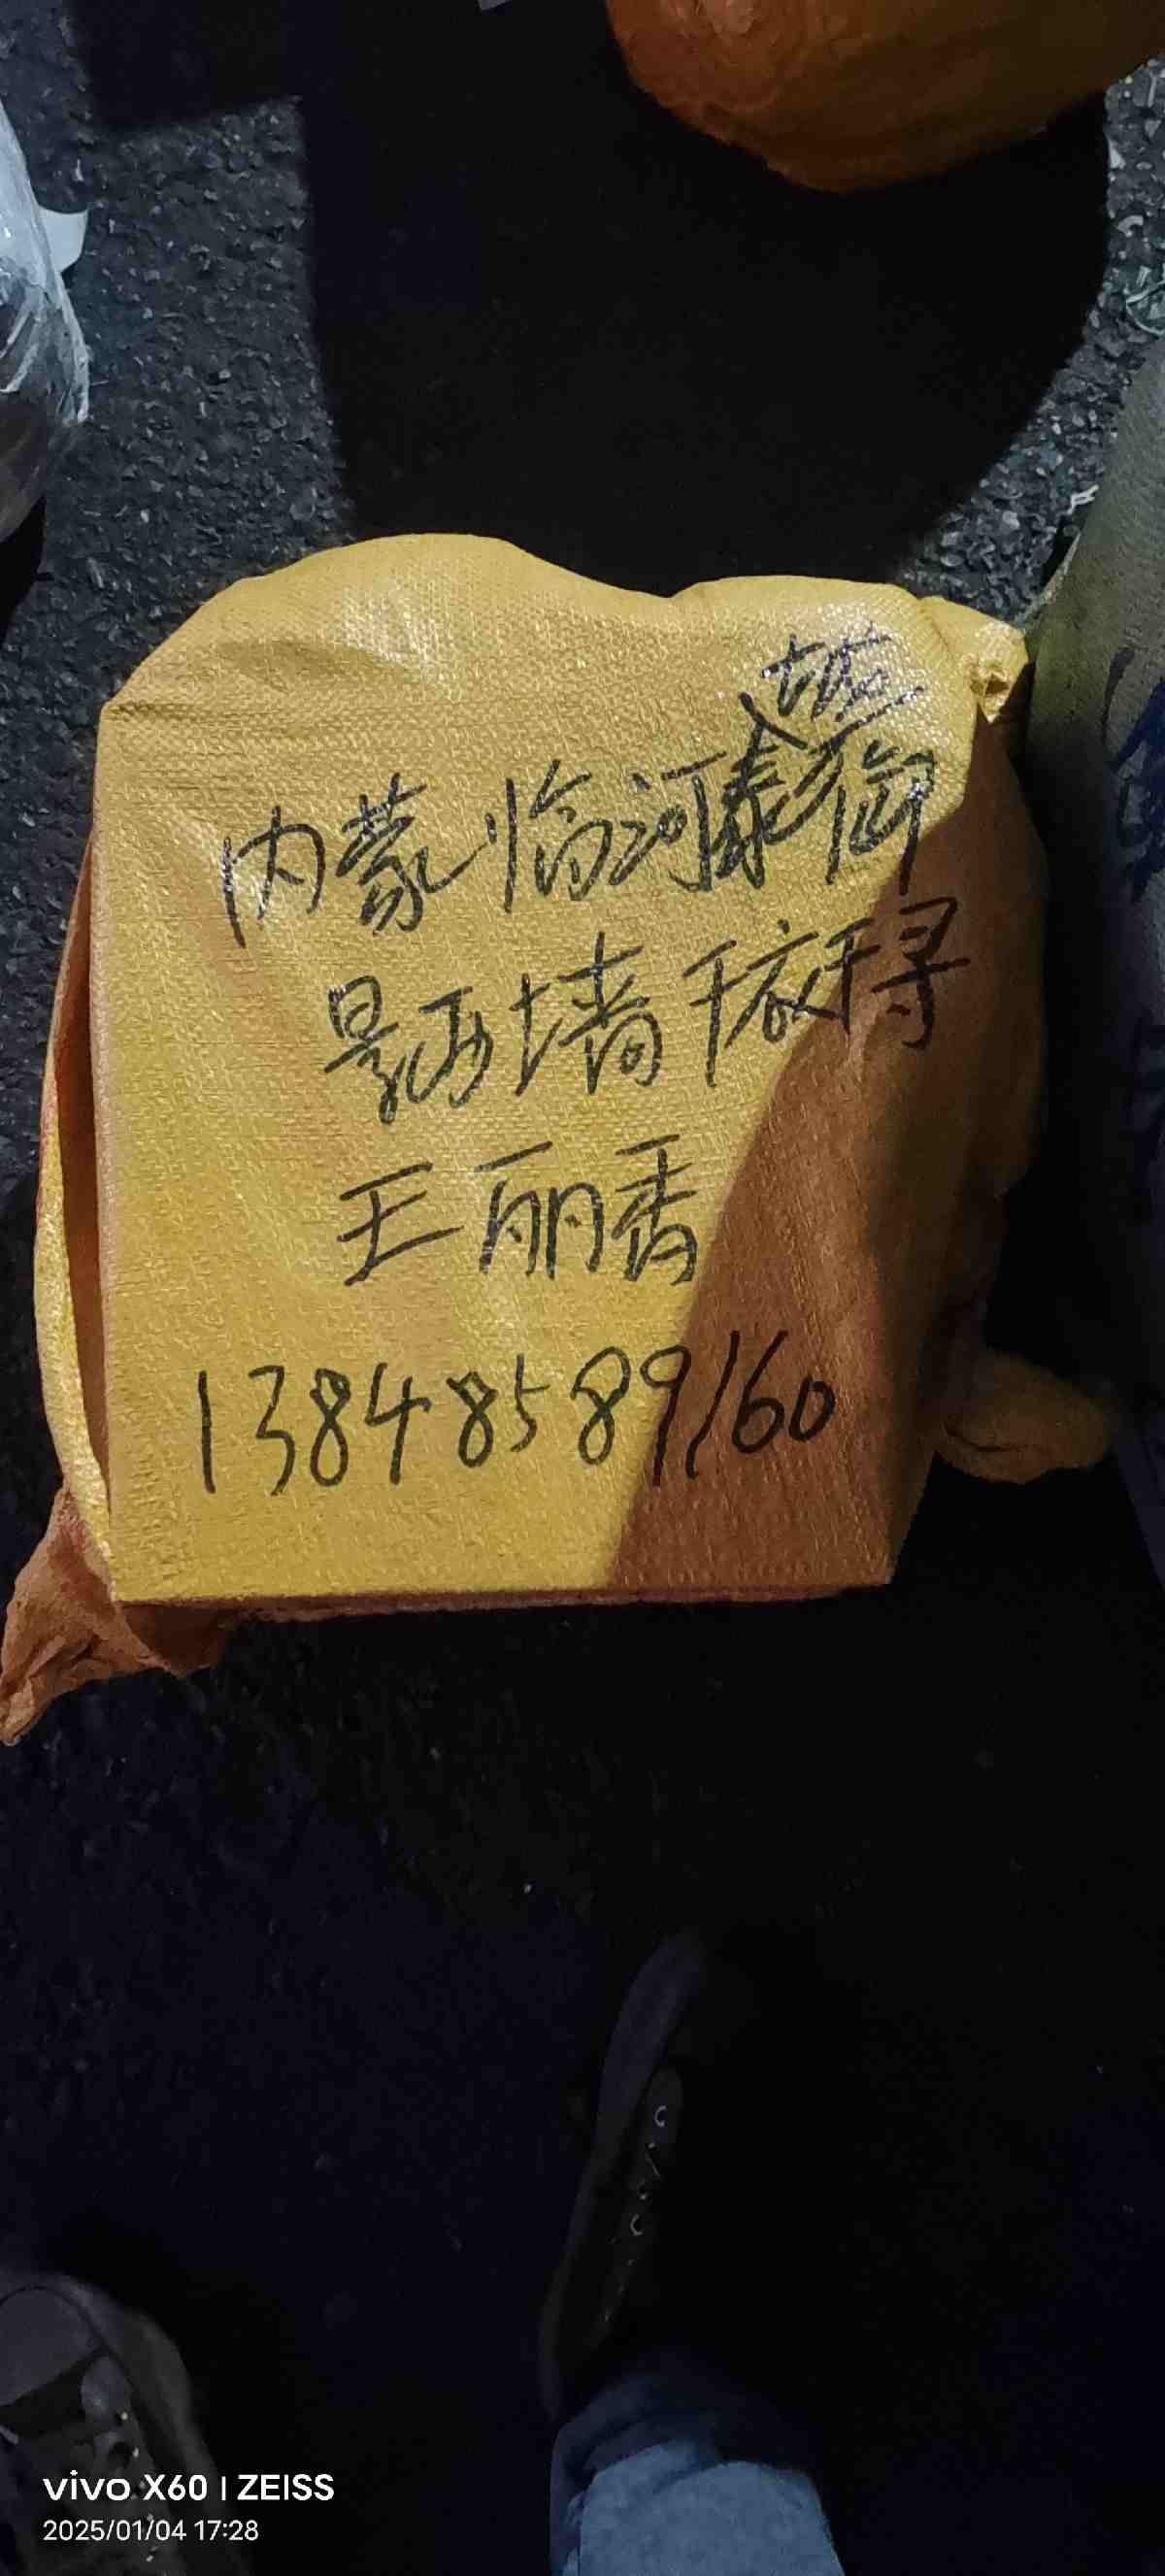 内蒙临河泰
景西墙千衣千寻
王丽香
13848589160
vivo X60 | ZEISS
2025/01/04 17:28